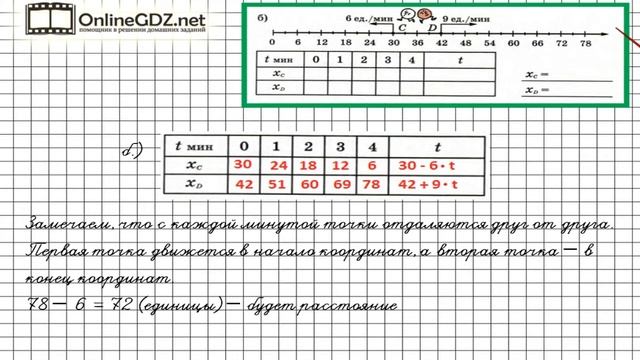 OnlineGDZ.net
помощник в решении домашних заданий
б)
6 ед./мин 9 ед./мин
C D
0 6 12 18 24 30 36 42 48 54 60 66 72 78
t мин 0 1 2 3 4 t
x_C
x_D
x_C =
x_D =
б.)
t мин 0 1 2 3 4 t
x_C 30 24 18 12 6 30 - 6 · t
x_D 42 51 60 69 78 42 + 9 · t
Замечаем, что с каждой минутой точки отдаляются друг от друга.
Первая точка движется в начало координат, а вторая точка – в
конец координат.
78 – 6 = 72 (единицы) – будет расстояние